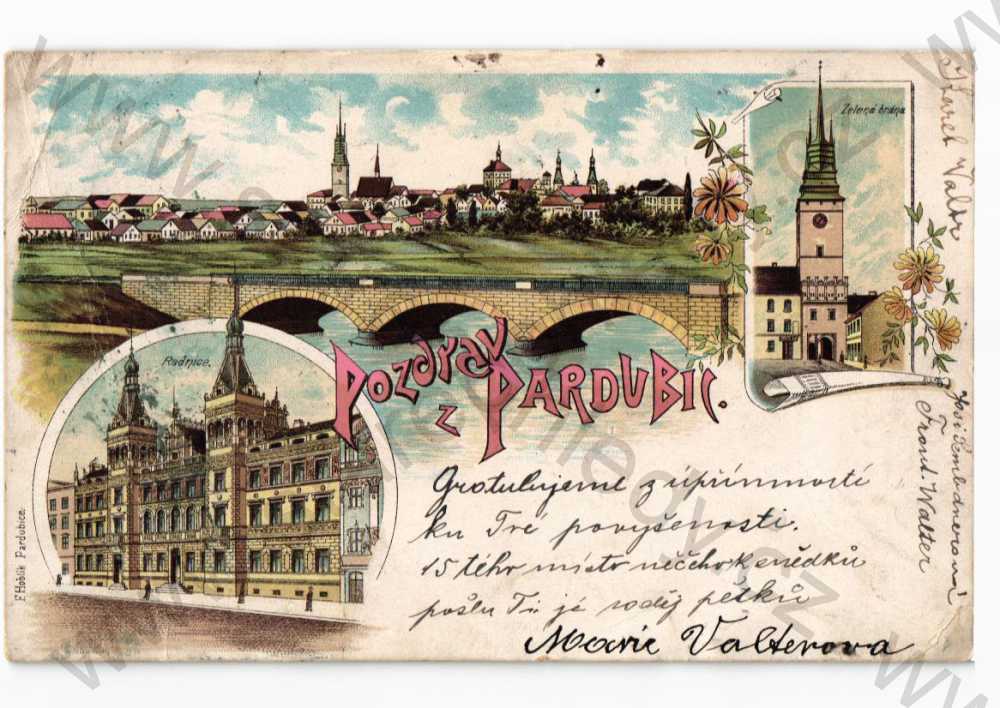 Zelená brána
Radnice.
Pozdrav
z Pardubic.
F. Hoblík Pardubice.
Gratulujeme z upřímnosti
ku Tvé povýšenosti.
15 tého místo něčeho k snědků
pošlu Ti já raděj pětků
Marie Valterova
Karel Valtr
Frant. Walter